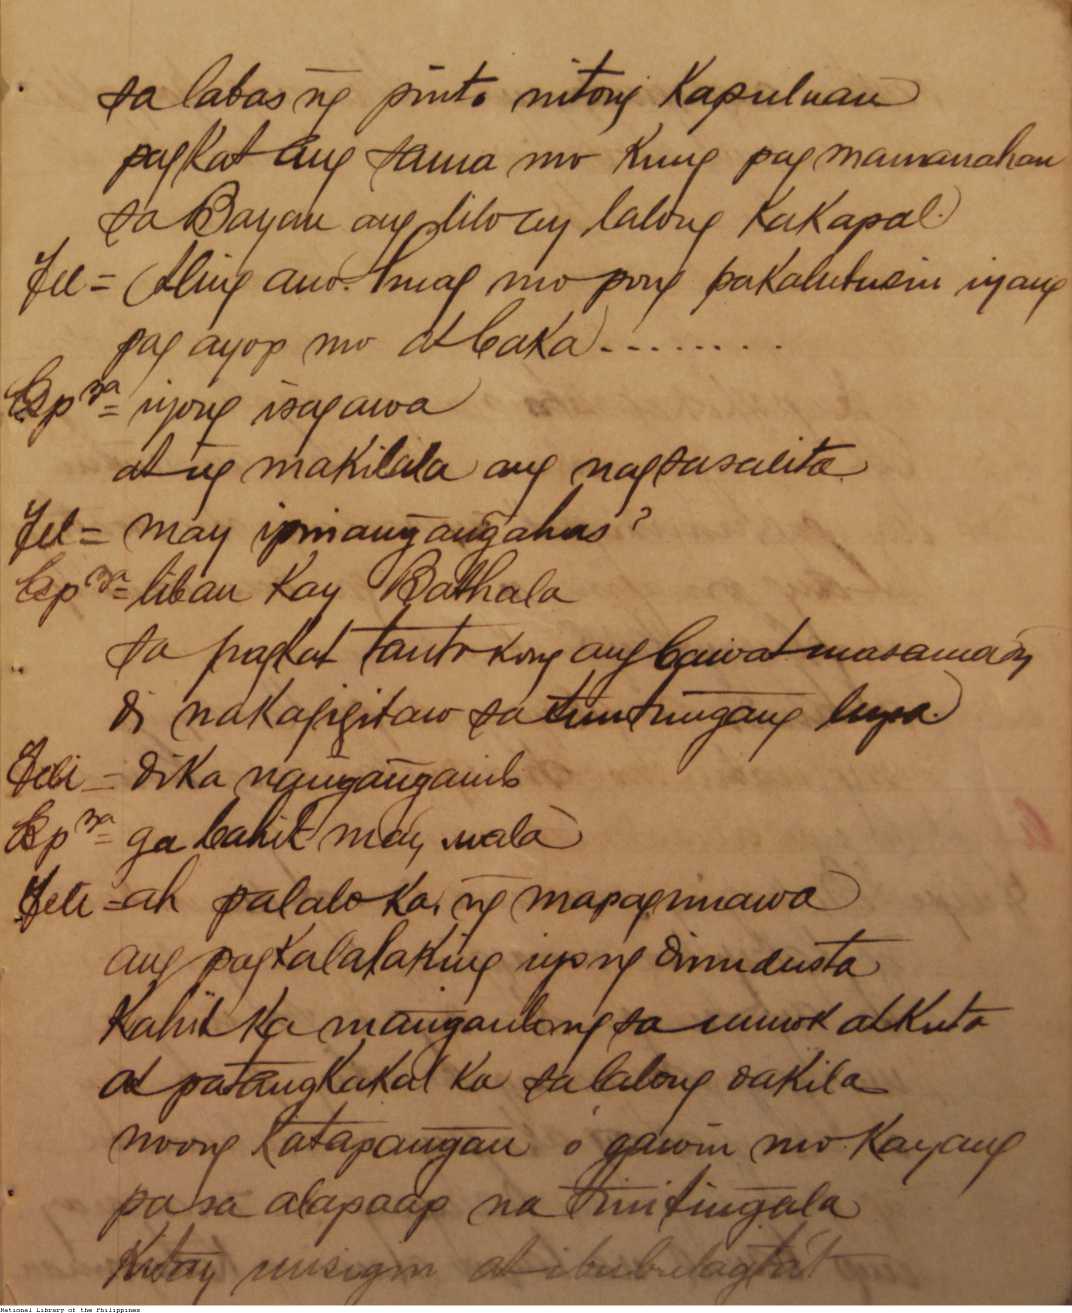 sa labas ng pinto nitong Kapuluan
pagkat ang sama mo kung pag mamanahan
sa Bayan ang lilo ay lalong kakapal.
Fel = Aling ano. huag mo pong pakalubusin iyang
pag ayop mo at baka. . . . . . . .
Espza = iyong isagawa
at ng makilala ang nagsasalita.
Fel = may ipinangangahas?
Espza = liban kay Bathala
sa pagkat tanto kong ang bawat masama ay
di nakagigitaw sa tungtungang lupa.
Feli = dika nanganganib
Espza = ga bahit may wala
Feli = ah palalo ka, ng mapagnuawa
ang pagkalalaking iyong dinudusta
Kahit ka manganlong sa at Kuta
at patangkakal ka sa lalong dakila
noong katapangan ó gawin mo kayang
pa sa alapaap na tinitingala
Kitay at ibubulagta't